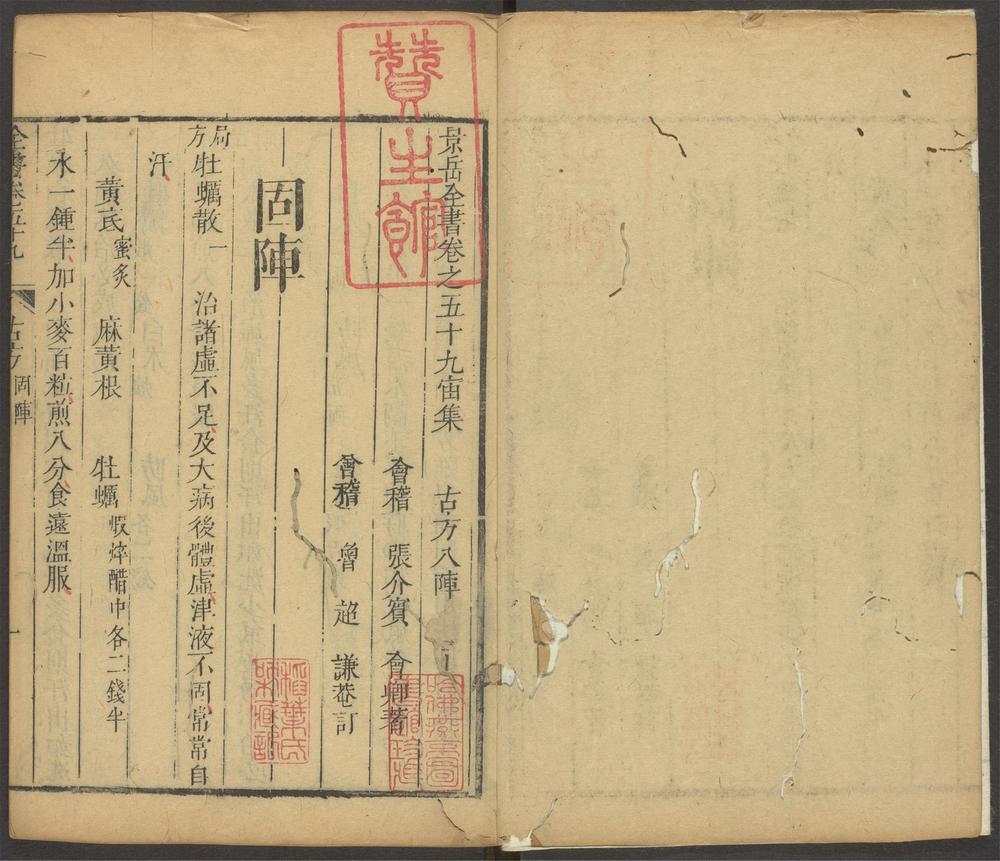 贊生館
景岳全書卷之五十九宙集　古方八陣
會稽　張介賓　會卿著
會稽　魯　超　謙菴訂
固陣
局方牡蠣散一　治諸虛不足及大病後體虛津液不固常常自
汗
黃芪蜜炙　麻黃根　牡蠣煆焠醋中各二錢半
水一鍾半加小麥百粒煎八分食遠溫服
全書卷五十九　古方固陣　一
稻葉氏